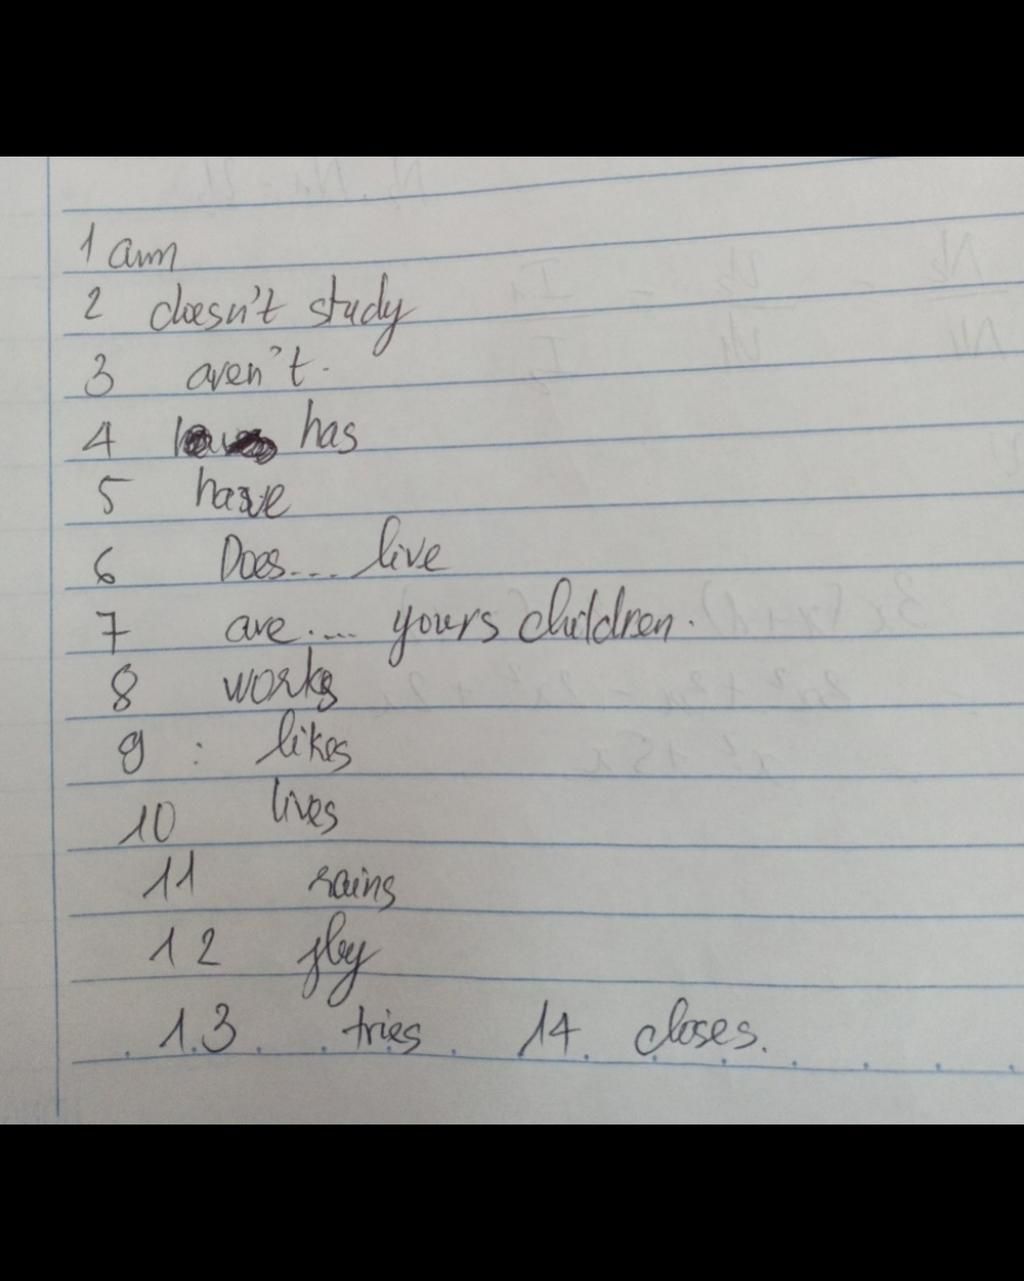 1 am
2 doesn't study
3 aren't.
4 has
5 have
6 Does.... live
7 are.... yours children.
8 works
9 : likes
10 lives
11 rains
12 fly
13 tries 14. closes.